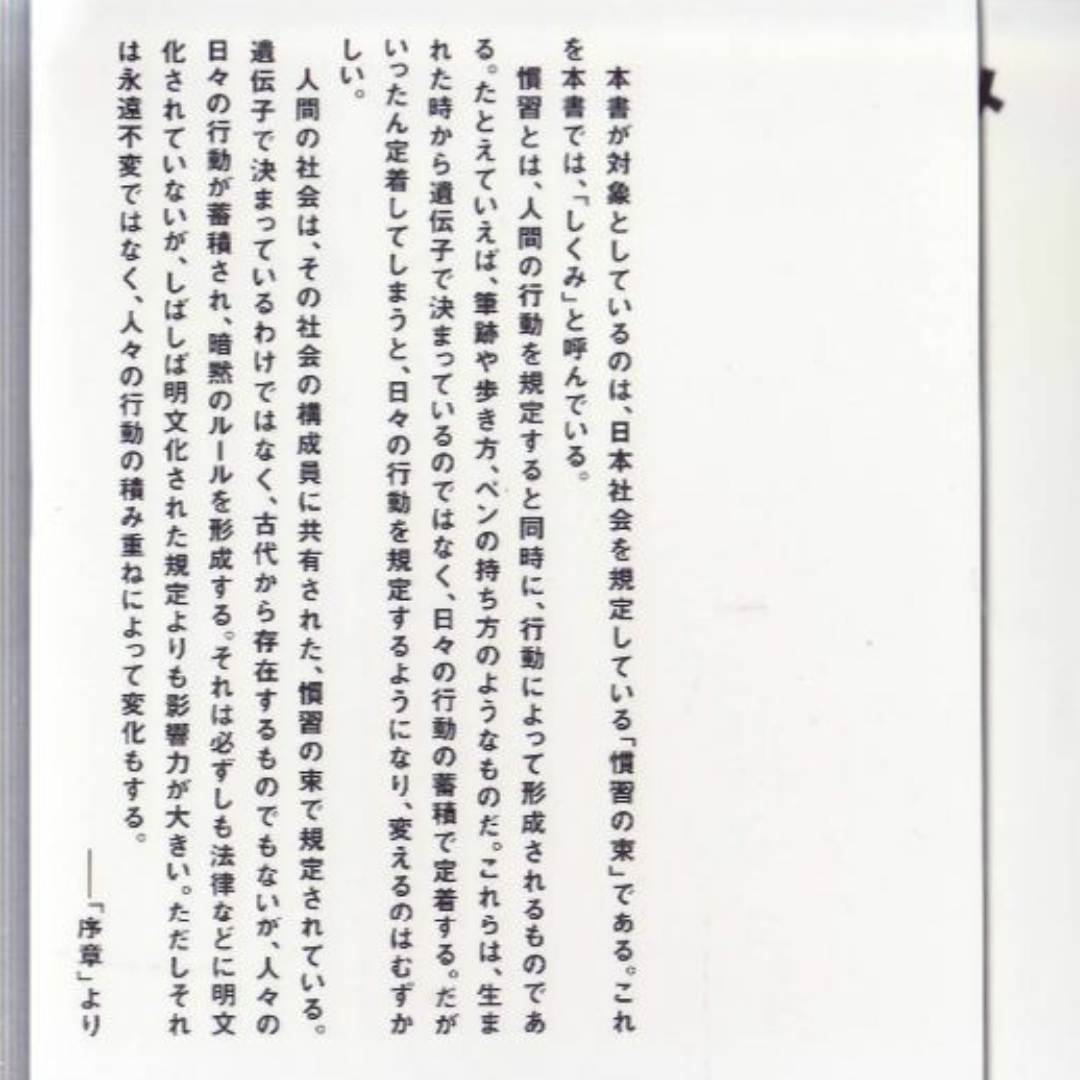 本書が対象としているのは、日本社会を規定している「慣習の束」である。これ
を本書では、「しくみ」と呼んでいる。
慣習とは、人間の行動を規定すると同時に、行動によって形成されるものであ
る。たとえていえば、筆跡や歩き方、ペンの持ち方のようなものだ。これらは、生ま
れた時から遺伝子で決まっているのではなく、日々の行動の蓄積で定着する。だが
いったん定着してしまうと、日々の行動を規定するようになり、変えるのはむずか
しい。
人間の社会は、その社会の構成員に共有された、慣習の束で規定されている。
遺伝子で決まっているわけではなく、古代から存在するものでもないが、人々の
日々の行動が蓄積され、暗黙のルールを形成する。それは必ずしも法律などに明文
化されていないが、しばしば明文化された規定よりも影響力が大きい。ただしそれ
は永遠不変ではなく、人々の行動の積み重ねによって変化もする。
――「序章」より